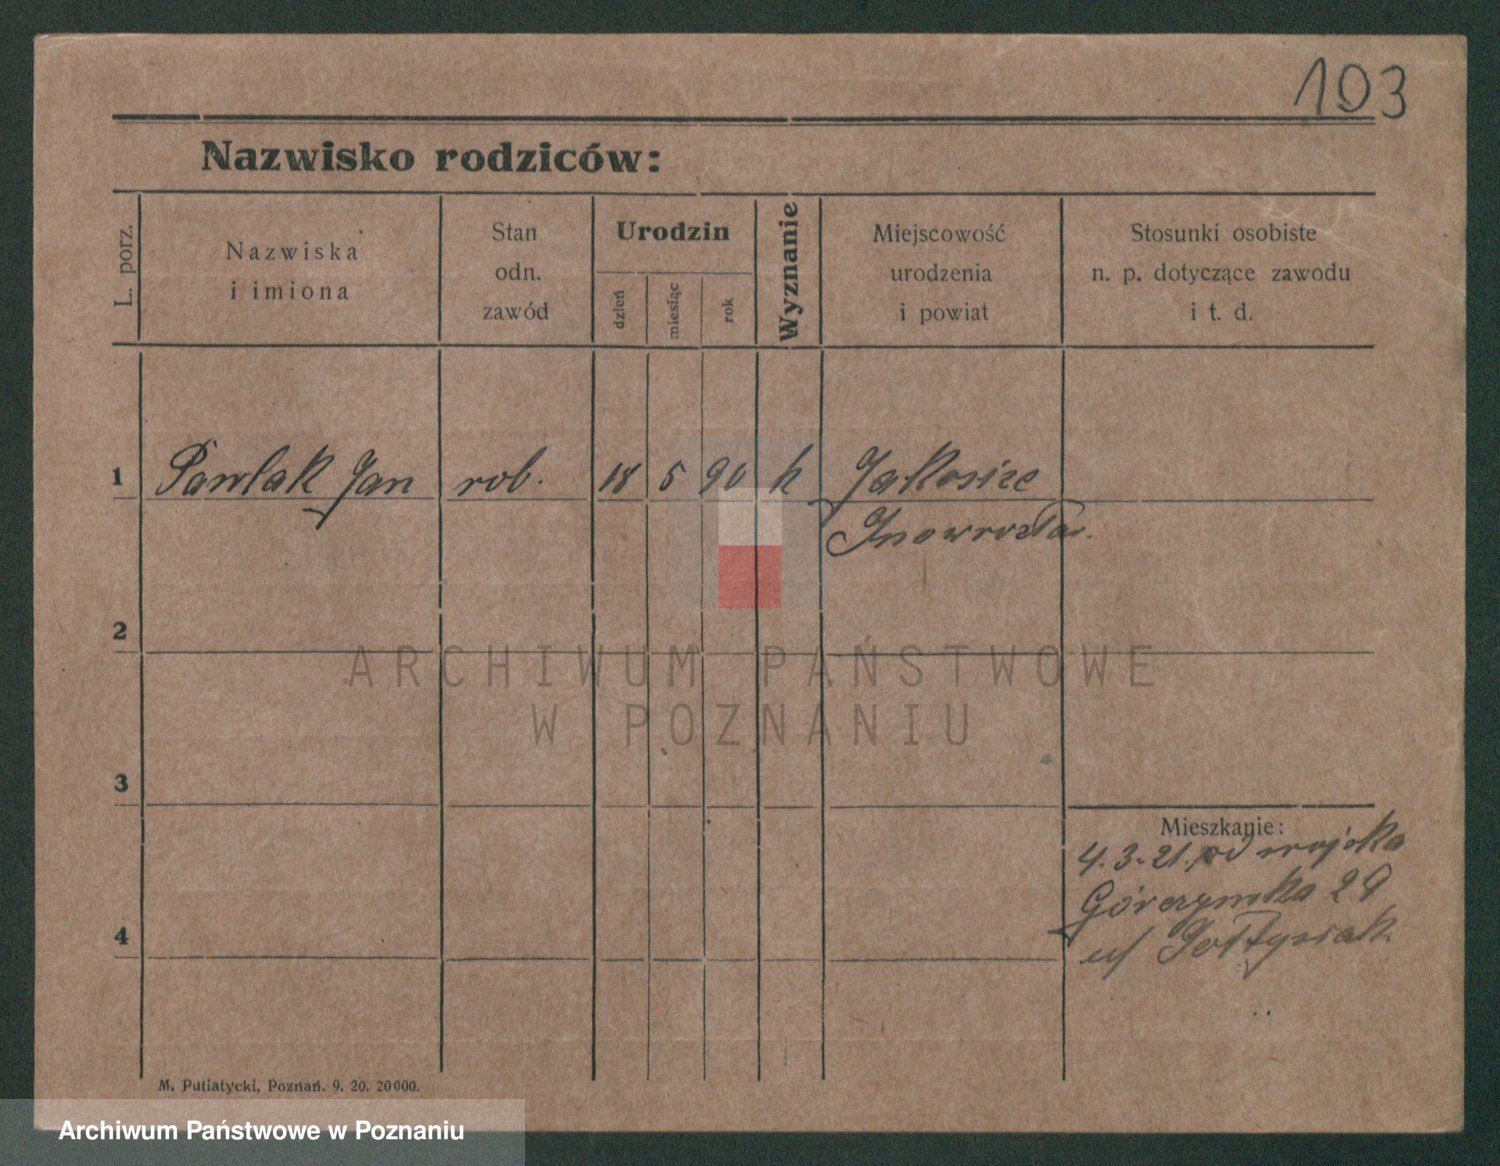 103
Nazwisko rodziców:
L. porz.
Nazwiska
i imiona
Stan
odn.
zawód
Urodzin
dzień
miesiąc
rok
Wyznanie
Miejscowość
urodzenia
i powiat
Stosunki osobiste
n. p. dotyczące zawodu
i t. d.
1 Pawlak Jan rob. 18 5 90 k
Inowrocław.
2
3
4
Mieszkanie:
4.3.21. od wojska
29
M. Putiatycki, Poznań. 9. 20. 20000.
ARCHIWUM PAŃSTWOWE
W POZNANIU
Archiwum Państwowe w Poznaniu